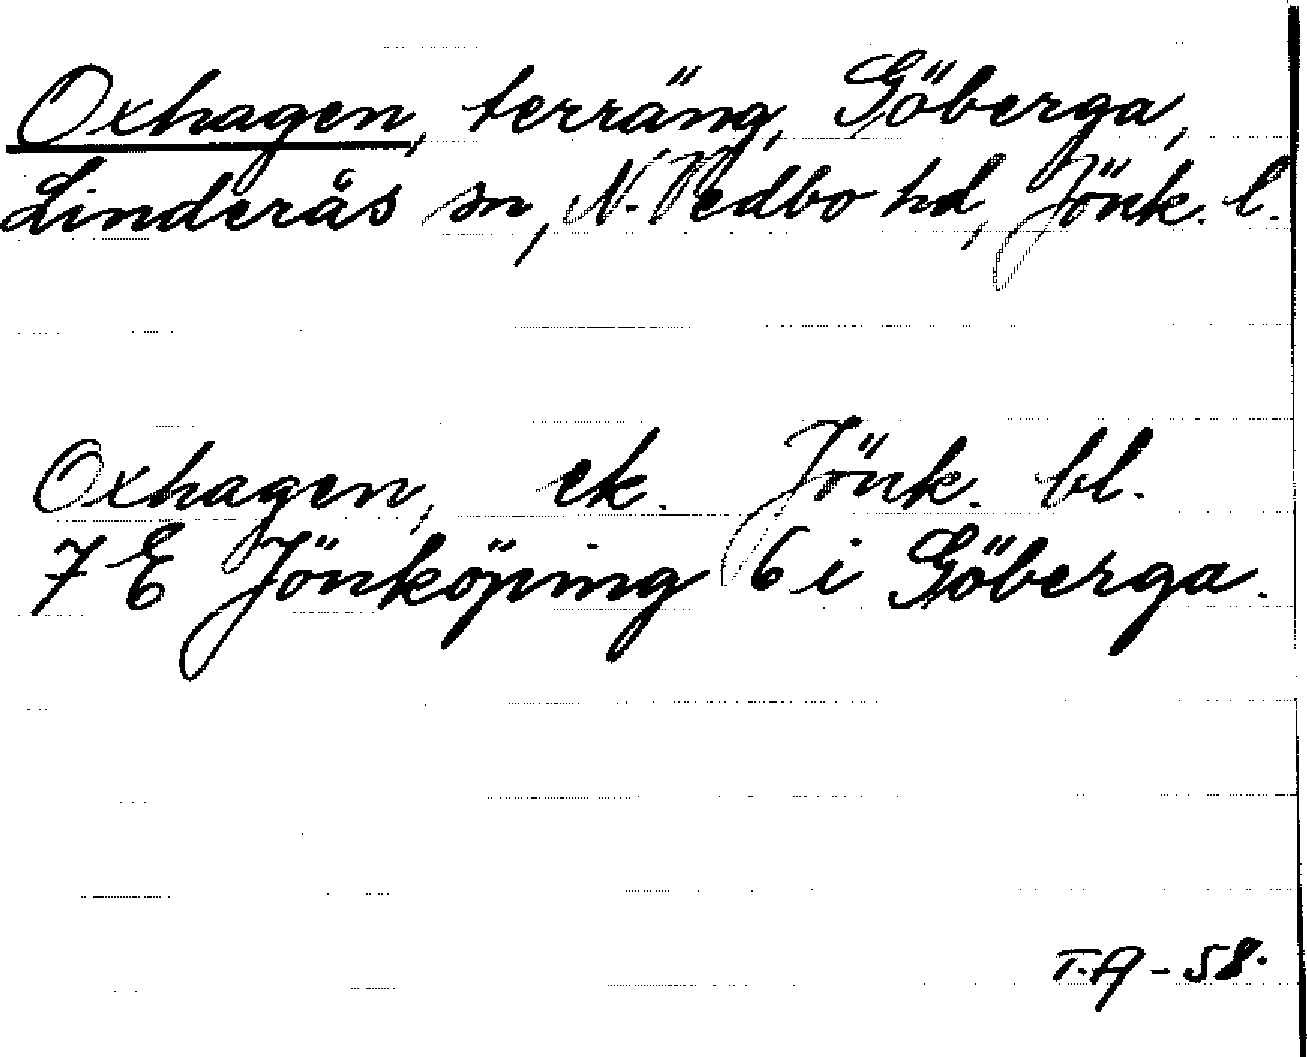 Oxhagen, terräng, Göberga,
Linderås sn, N. Vedbo hd, Jönk. l.
Oxhagen, ek. Jönk. bl.
7 E Jönköping 6 i Göberga.
T.A - 58.